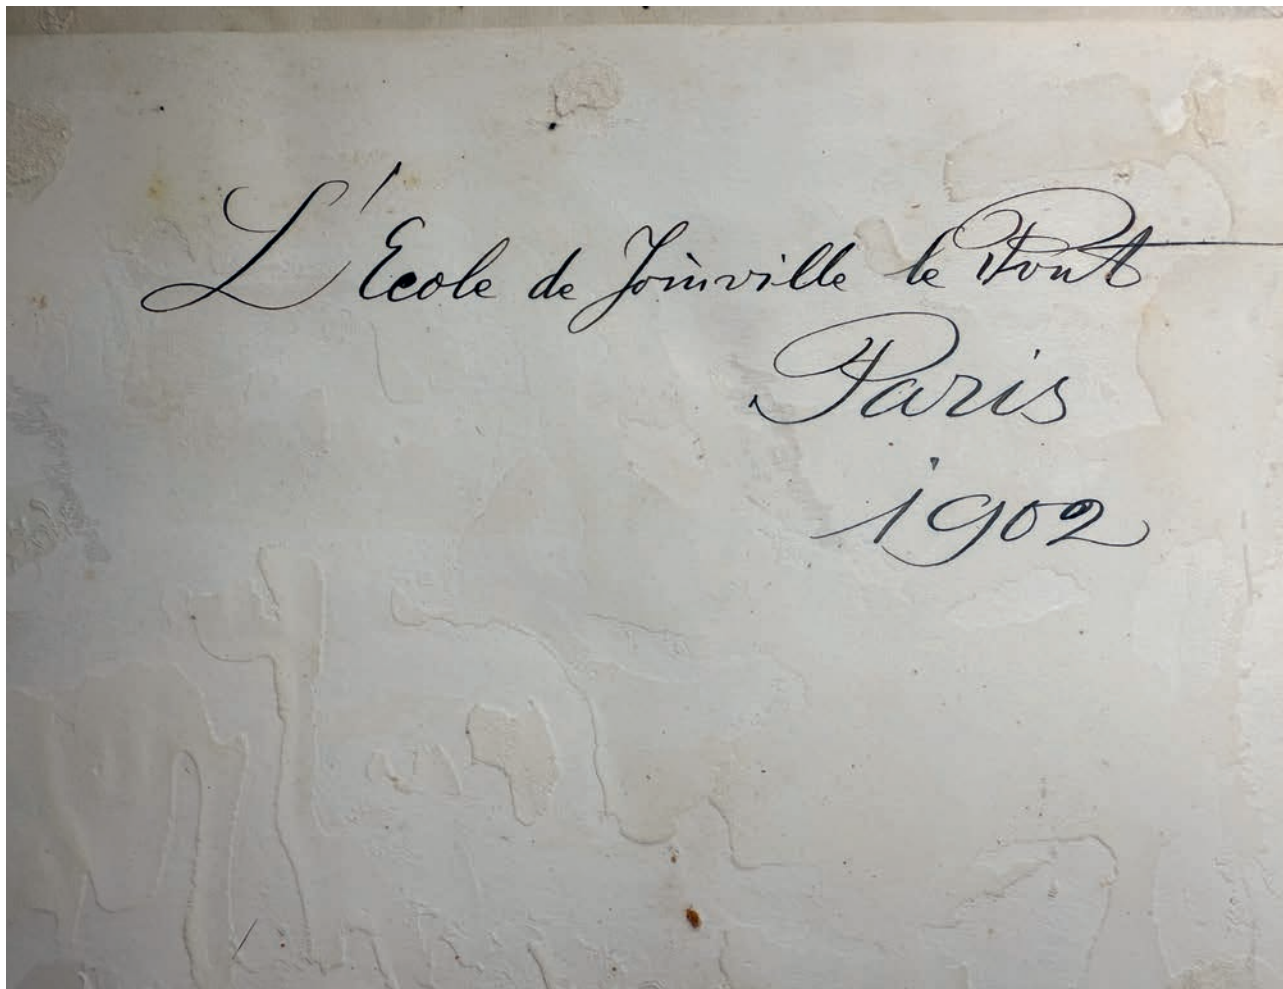 L'Ecole de Joinville le Pont
Paris
1902